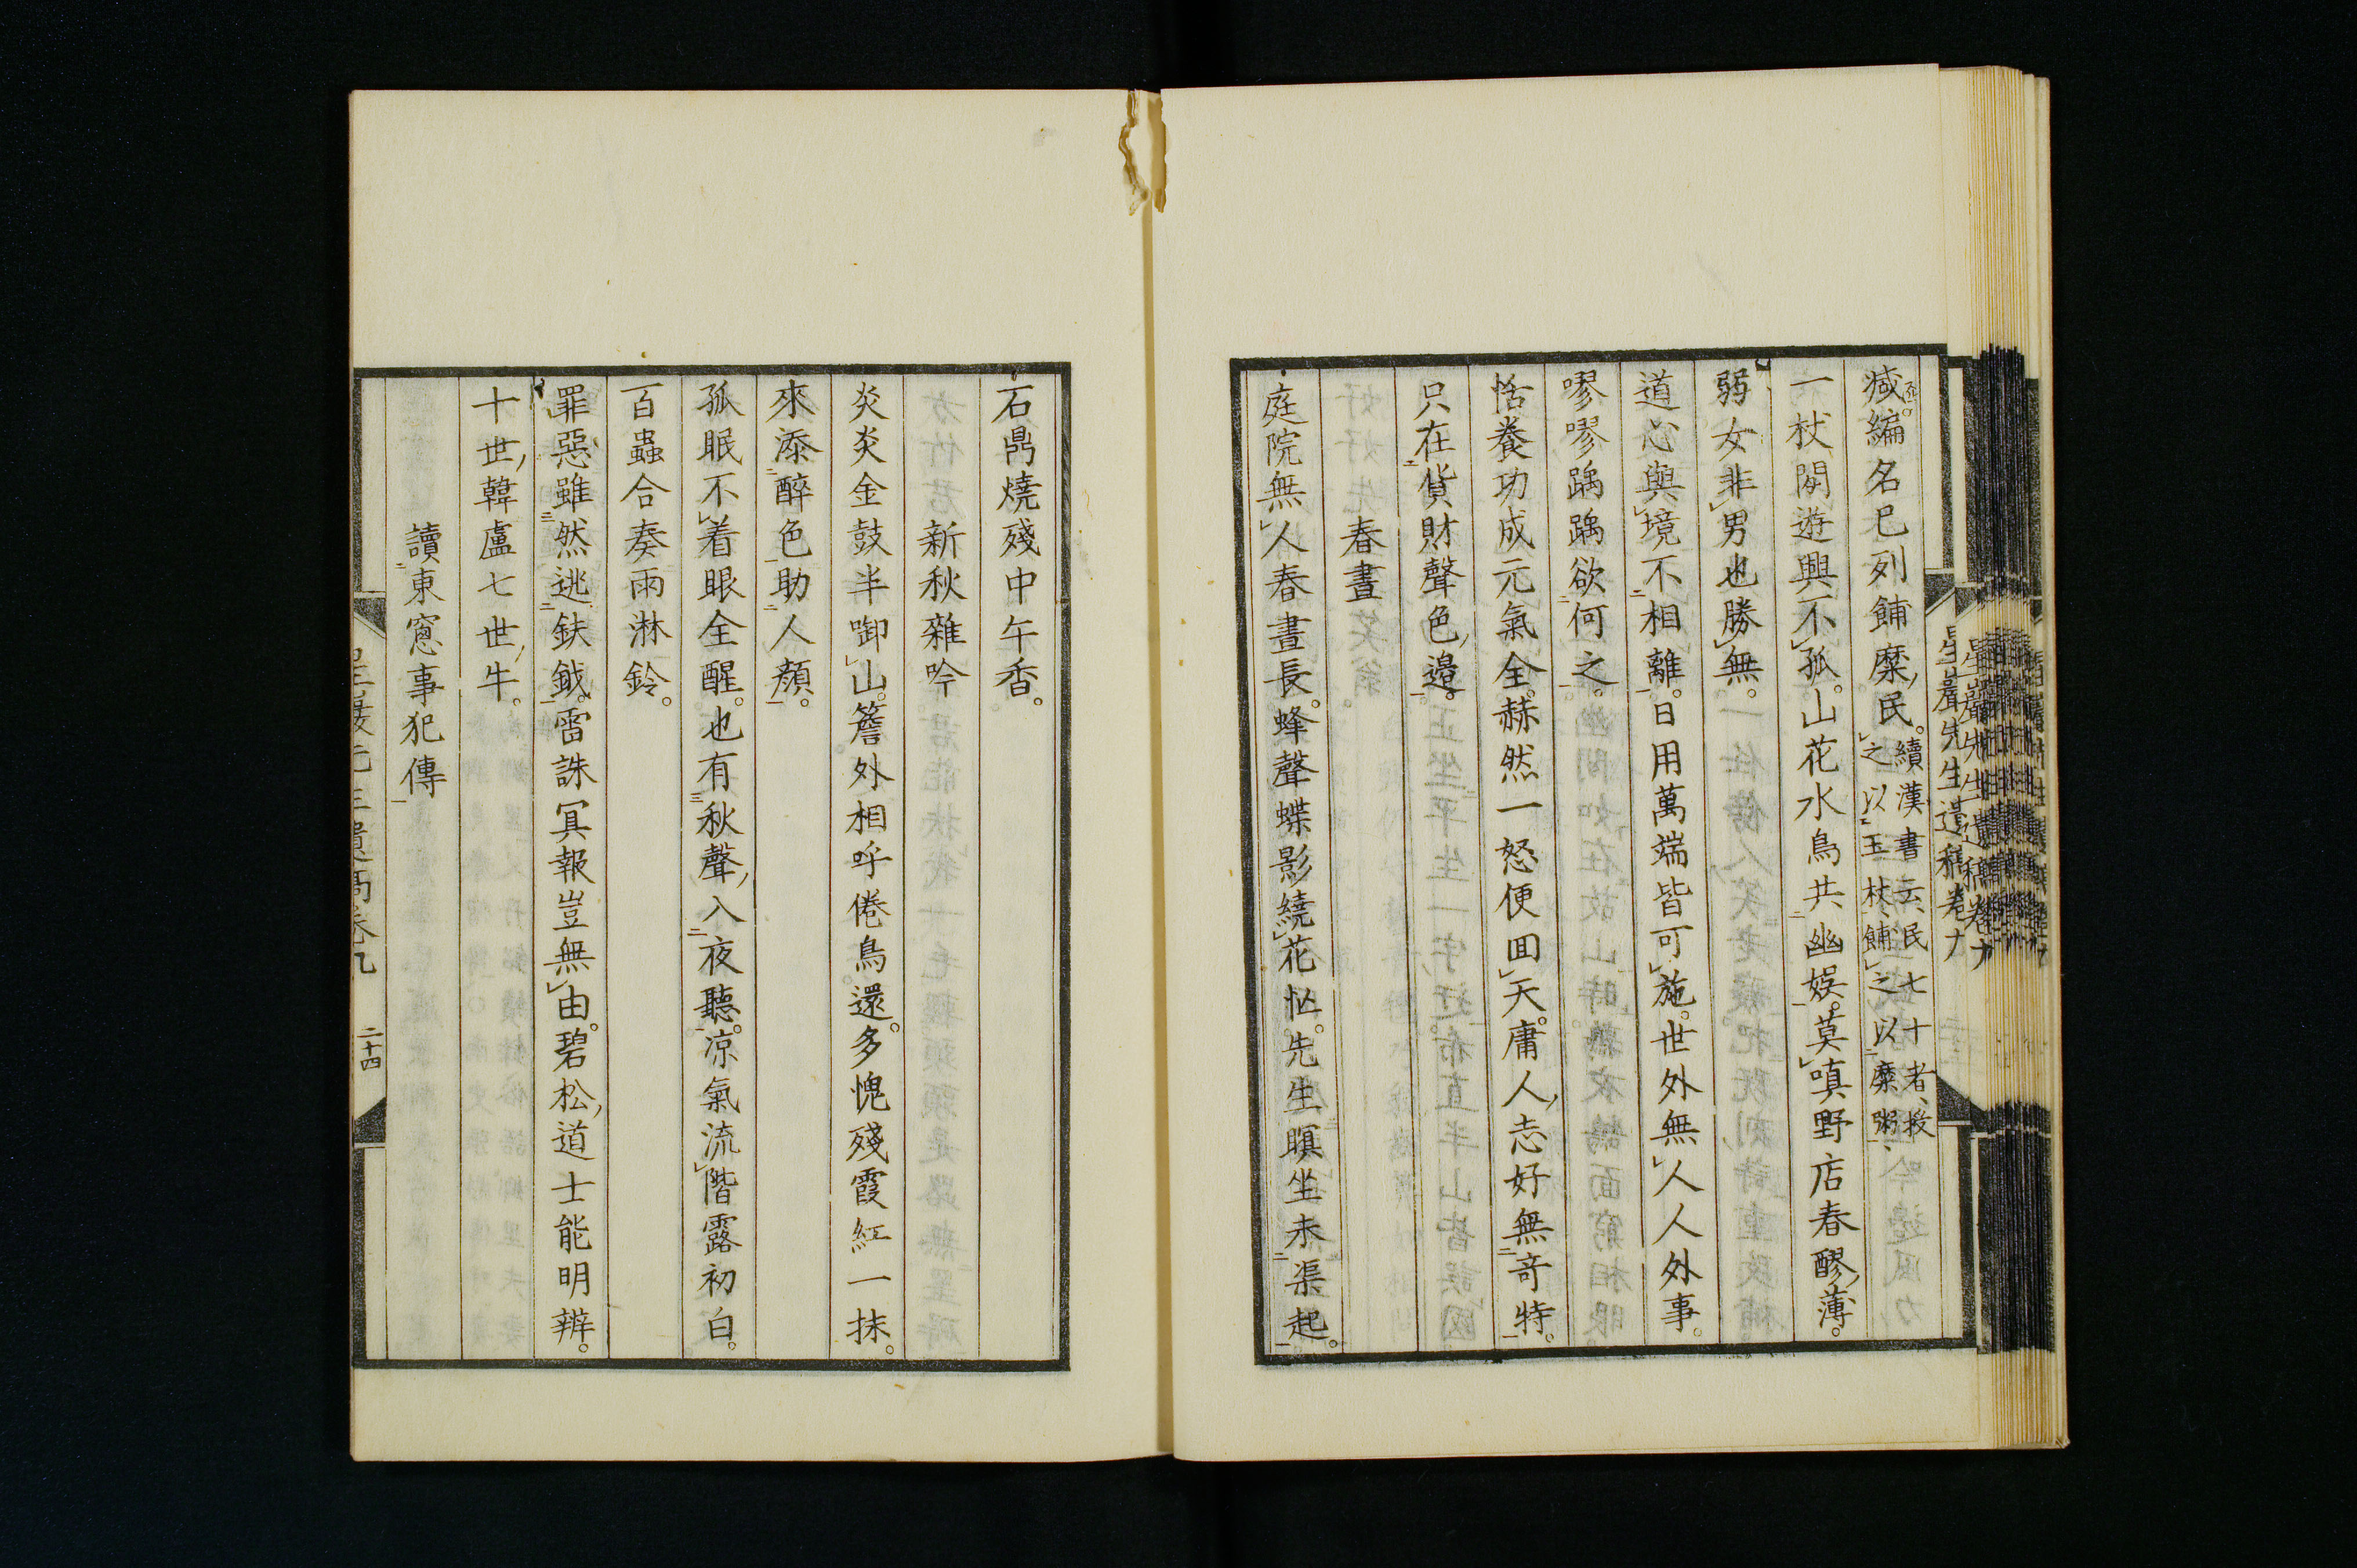 編名已列餔糜民。續漢書云、民七十者、授
之以玉杖、餔之以糜粥、
一杖閑遊興不孤。山花水鳥共幽娯。莫嗔野店春醪薄。
弱女非男也勝無。
道心與境不相離。日用萬端皆可施。世外無人人外事。
嘐嘐踽踽欲何之。
恬養功成元氣全。赫然一怒便回天。庸人志好無奇特。
只在貨財聲色邊。
春晝
庭院無人春晝長。蜂聲蝶影繞花忙。先生瞑坐未渠起。
石鼎燒殘中午香。
新秋雜吟
炎炎金鼓半啣山。簷外相呼倦鳥還。多愧殘霞紅一抹。
來添醉色助人顏。
孤眠不着眼全醒。也有秋聲入夜聽。涼氣流階露初白。
百蟲合奏雨淋鈴。
罪惡雖然逃鈇鉞。雷誅冥報豈無由。碧松道士能明辨。
十世韓盧七世牛。
讀東窓事犯傳
星巖先生遺稿卷九 二十四